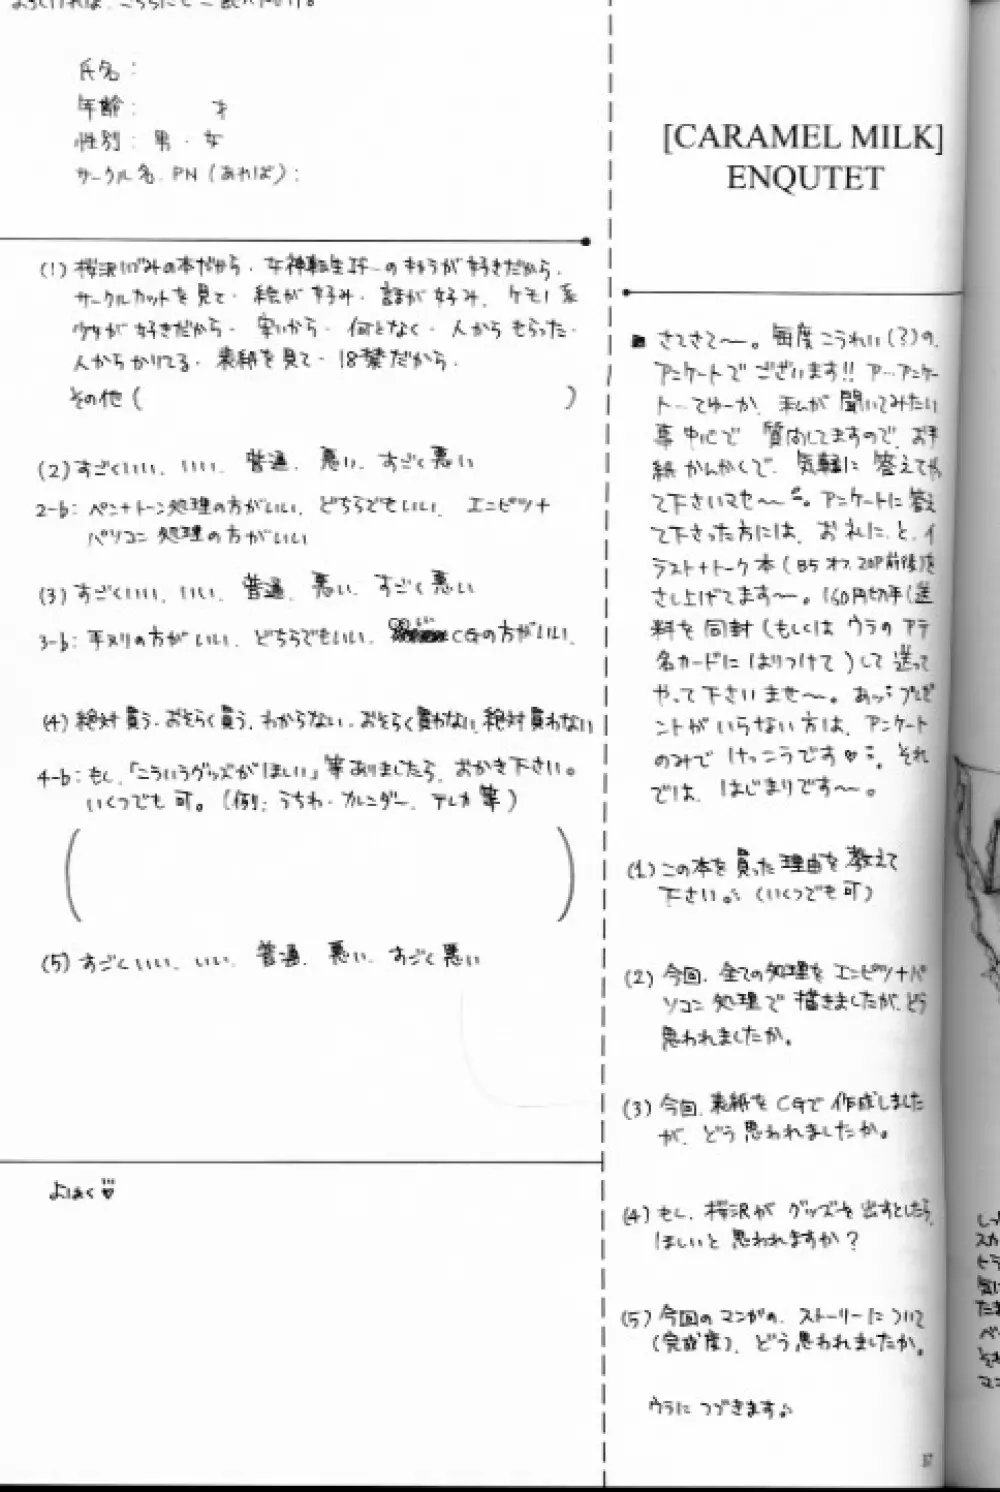 氏名：
年齢： 才
性別：男・女
サークル名．PN（あれば）：
(1) 桜沢いづみの本だから．女神転生if…のキャラが好きだから．
サークルカットを見て．絵が好み．話が好み．ケモノ系
少年が好きだから．安いから．何となく．人からもらった．
人からかりてる．表紙を見て．18禁だから．
その他（ ）
(2) すごくいい．いい．普通．悪い．すごく悪い
2-b：ペン+トーン処理の方がいい．どちらでもいい．エンピツ+
パソコン処理の方がいい
(3) すごくいい．いい．普通．悪い．すごく悪い
3-b：手ヌリの方がいい．どちらでもいい．CGの方がいい．
(4) 絶対買う．おそらく買う．わからない．おそらく買わない．絶対買わない
4-b：もし、「こういうグッズがほしい」等ありましたら、おかき下さい。
いくつでも可。（例：うちわ・カレンダー、テレカ等）
(5) すごくいい．いい．普通．悪い．すごく悪い
よはく♡
[CARAMEL MILK]
ENQUTET
■ さてさて〜。毎度こうれい（？）の、
アンケートでございます!! ア…アンケー
ト…てゆーか、私が聞いてみたい
事中心で質問してますので、お手
紙かんかくで、気軽に答えてや
って下さいマセ〜。アンケートに答え
て下さった方には、お礼に、と、イ
ラスト+トーク本（B5オフ、20P前後）を
さし上げてます〜。160円切手（送
料を同封（もしくはウラのアテ
名カードにはりつけて）して送って
やって下さいませ〜。あっ、プレゼ
ントがいらない方は、アンケート
のみでけっこうです♡。それ
では、はじまりです〜。
(1) この本を買った理由を教えて
下さい。（いくつでも可）
(2) 今回、全ての処理をエンピツ+パ
ソコン処理で描きましたが、どう
思われましたか。
(3) 今回、表紙をCGで作成しました
が、どう思われましたか。
(4) もし、桜沢がグッズを出すとしたら、
ほしいと思われますか？
(5) 今回のマンガの、ストーリーについて
（完成度）、どう思われましたか。
ウラにつづきます♪
37